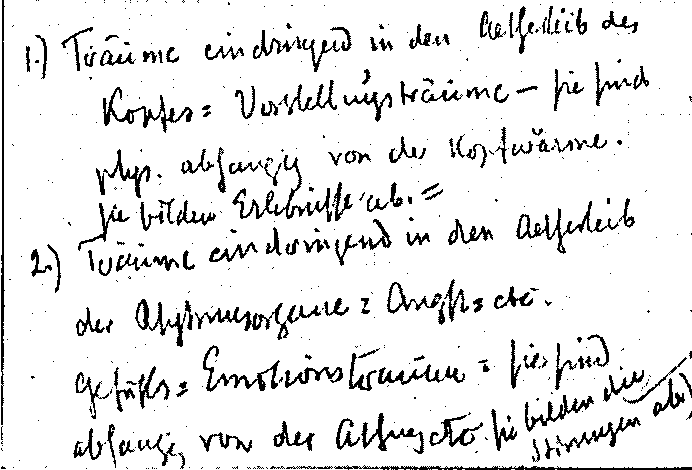 1.) Träume eindringend in den Aetherleib des
Kopfes = Vorstellungsträume – sie sind
phys. abhängig von der Kopfwärme.
Sie bilden Erlebnisse ab. =
2.) Träume eindringend in den Aetherleib
der Athmungsorgane = Angst = etc.
Gefühls = Emotionsträume = sie sind
abhängig von der Athmung etc. sie bilden die
Stimmungen ab)